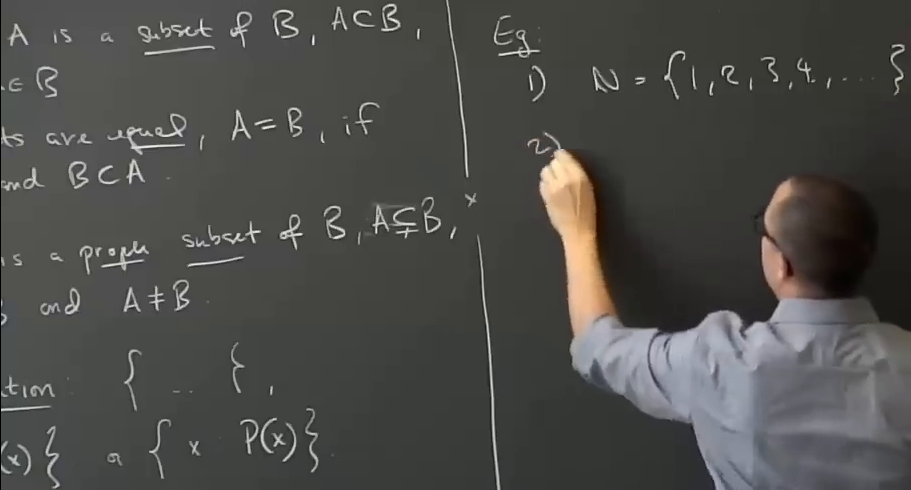 A is a subset of B, A⊂B,
∈ B
ts are equal, A = B, if
and B⊂A.
is a proper subset of B, A⊊B,
and A ≠ B.
ation: { .. },
(x)} or { x P(x)}.
Eg:
1) N = {1, 2, 3, 4, ....}
2)